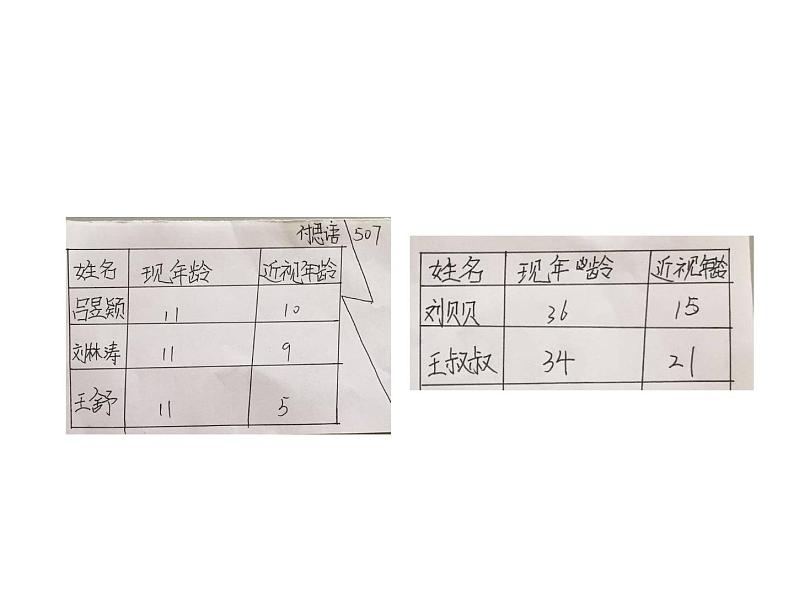 付思语 507
姓名 现年龄 近视年龄
吕昱颖 11 10
刘林涛 11 9
王舒 11 5
姓名 现年龄 近视年龄
刘贝贝 36 15
王叔叔 34 21